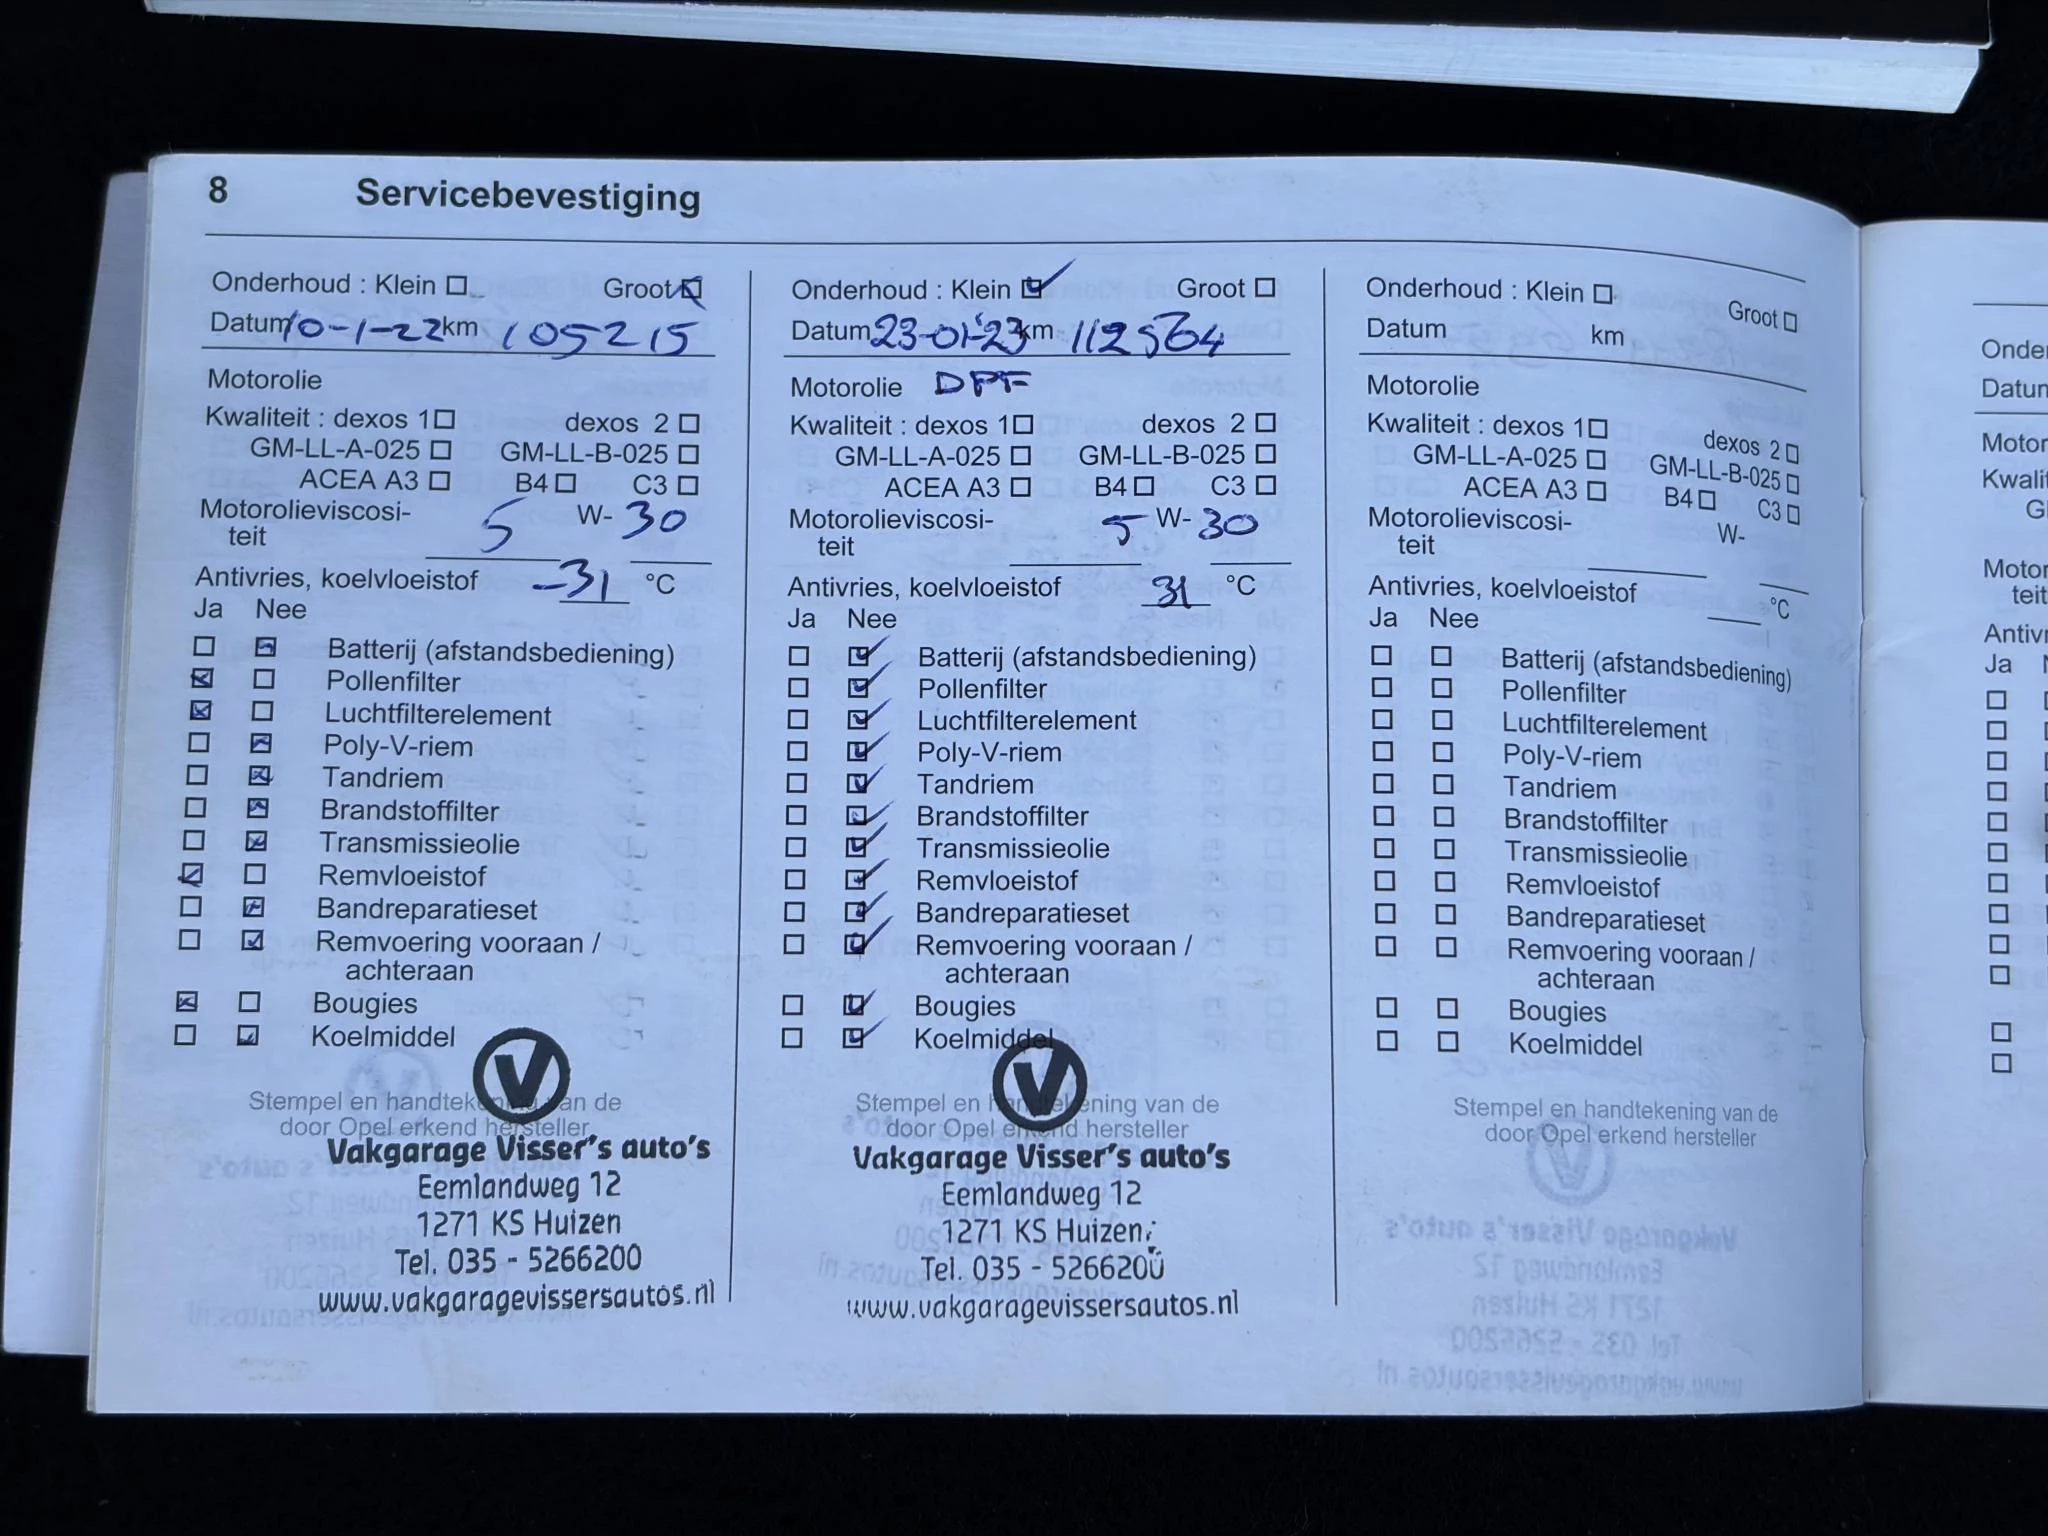 8 Servicebevestiging
Onderhoud : Klein Groot
Datum 10-1-22 km 105215
Motorolie
Kwaliteit : dexos 1 dexos 2
GM-LL-A-025 GM-LL-B-025
ACEA A3 B4 C3
Motorolieviscosi-
teit 5 W- 30
Antivries, koelvloeistof -31 °C
Ja Nee
Batterij (afstandsbediening)
Pollenfilter
Luchtfilterelement
Poly-V-riem
Tandriem
Brandstoffilter
Transmissieolie
Remvloeistof
Bandreparatieset
Remvoering vooraan /
achteraan
Bougies
Koelmiddel
Stempel en handtekening van de
door Opel erkend hersteller
Vakgarage Visser's auto's
Eemlandweg 12
1271 KS Huizen
Tel. 035 - 5266200
www.vakgaragevissersautos.nl
Onderhoud : Klein Groot
Datum 23-01-'23 km 112564
Motorolie DPF
Kwaliteit : dexos 1 dexos 2
GM-LL-A-025 GM-LL-B-025
ACEA A3 B4 C3
Motorolieviscosi-
teit 5 W- 30
Antivries, koelvloeistof 31 °C
Ja Nee
Batterij (afstandsbediening)
Pollenfilter
Luchtfilterelement
Poly-V-riem
Tandriem
Brandstoffilter
Transmissieolie
Remvloeistof
Bandreparatieset
Remvoering vooraan /
achteraan
Bougies
Koelmiddel
Stempel en handtekening van de
door Opel erkend hersteller
Vakgarage Visser's auto's
Eemlandweg 12
1271 KS Huizen
Tel. 035 - 5266200
www.vakgaragevissersautos.nl
Onderhoud : Klein Groot
Datum km
Motorolie
Kwaliteit : dexos 1 dexos 2
GM-LL-A-025 GM-LL-B-025
ACEA A3 B4 C3
Motorolieviscosi-
teit W-
Antivries, koelvloeistof °C
Ja Nee
Batterij (afstandsbediening)
Pollenfilter
Luchtfilterelement
Poly-V-riem
Tandriem
Brandstoffilter
Transmissieolie
Remvloeistof
Bandreparatieset
Remvoering vooraan /
achteraan
Bougies
Koelmiddel
Stempel en handtekening van de
door Opel erkend hersteller
teit
Ja